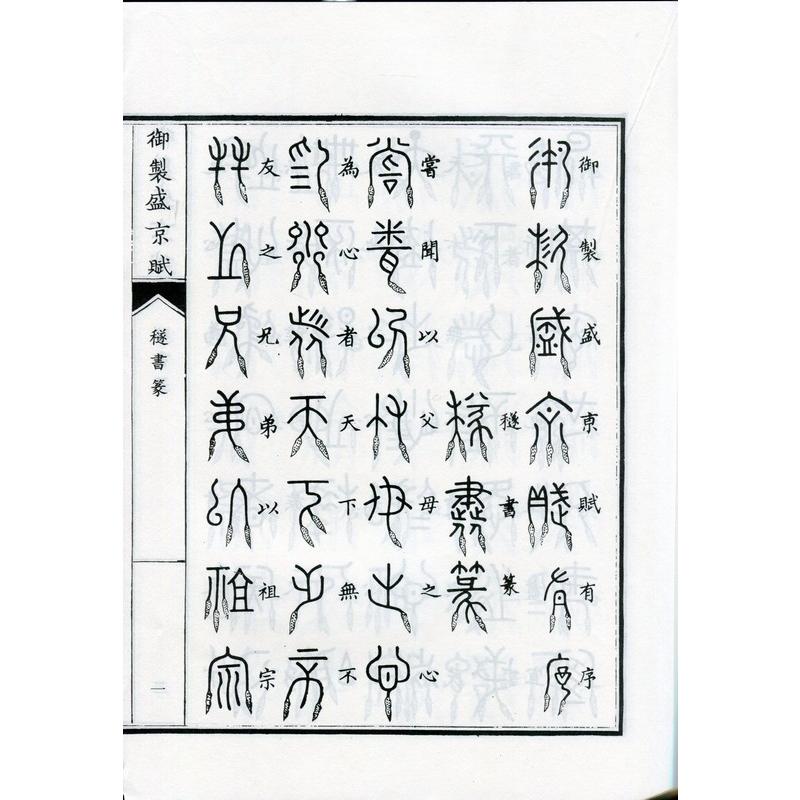 御製盛京賦有序
穟書篆
嘗聞以父母之心
為心者天下無不
友之兄弟以祖宗
御製盛京賦
穟書篆
一